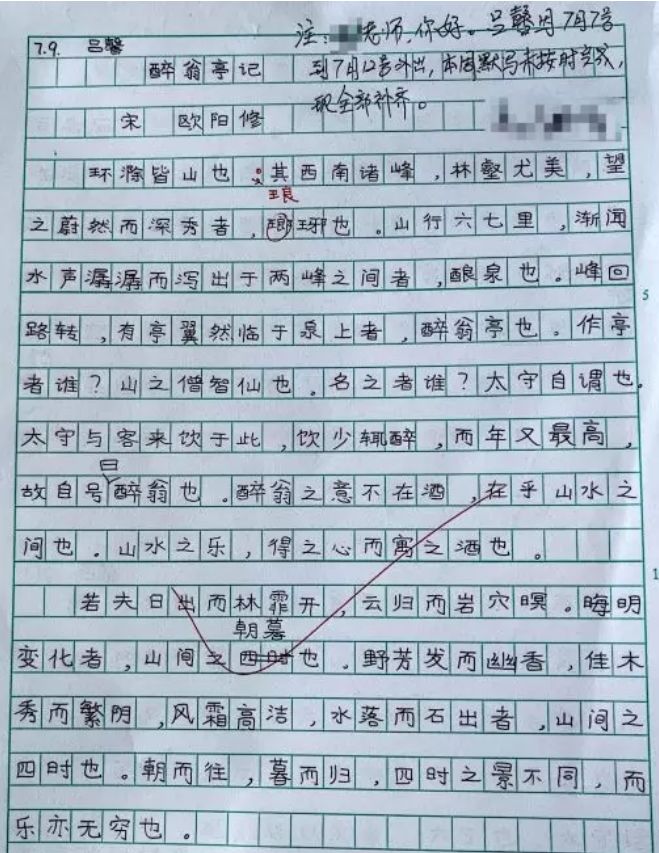 7.9. 吕馨
注: 老师,你好。吕馨月7月7号
到7月12号外出,本周默写未按时完成,
现全部补齐。
醉翁亭记
宋 欧阳修
环滁皆山也。其西南诸峰,林壑尤美,望
琅
之蔚然而深秀者,瑯琊也。山行六七里,渐闻
水声潺潺而泻出于两峰之间者,酿泉也。峰回
5
路转,有亭翼然临于泉上者,醉翁亭也。作亭
者谁?山之僧智仙也。名之者谁?太守自谓也。
太守与客来饮于此,饮少辄醉,而年又最高,
曰
故自号醉翁也。醉翁之意不在酒,在乎山水之
间也。山水之乐,得之心而寓之酒也。
1
若夫日出而林霏开,云归而岩穴暝。晦明
朝暮
变化者,山间之四时也。野芳发而幽香,佳木
秀而繁阴,风霜高洁,水落而石出者,山间之
四时也。朝而往,暮而归,四时之景不同,而
乐亦无穷也。